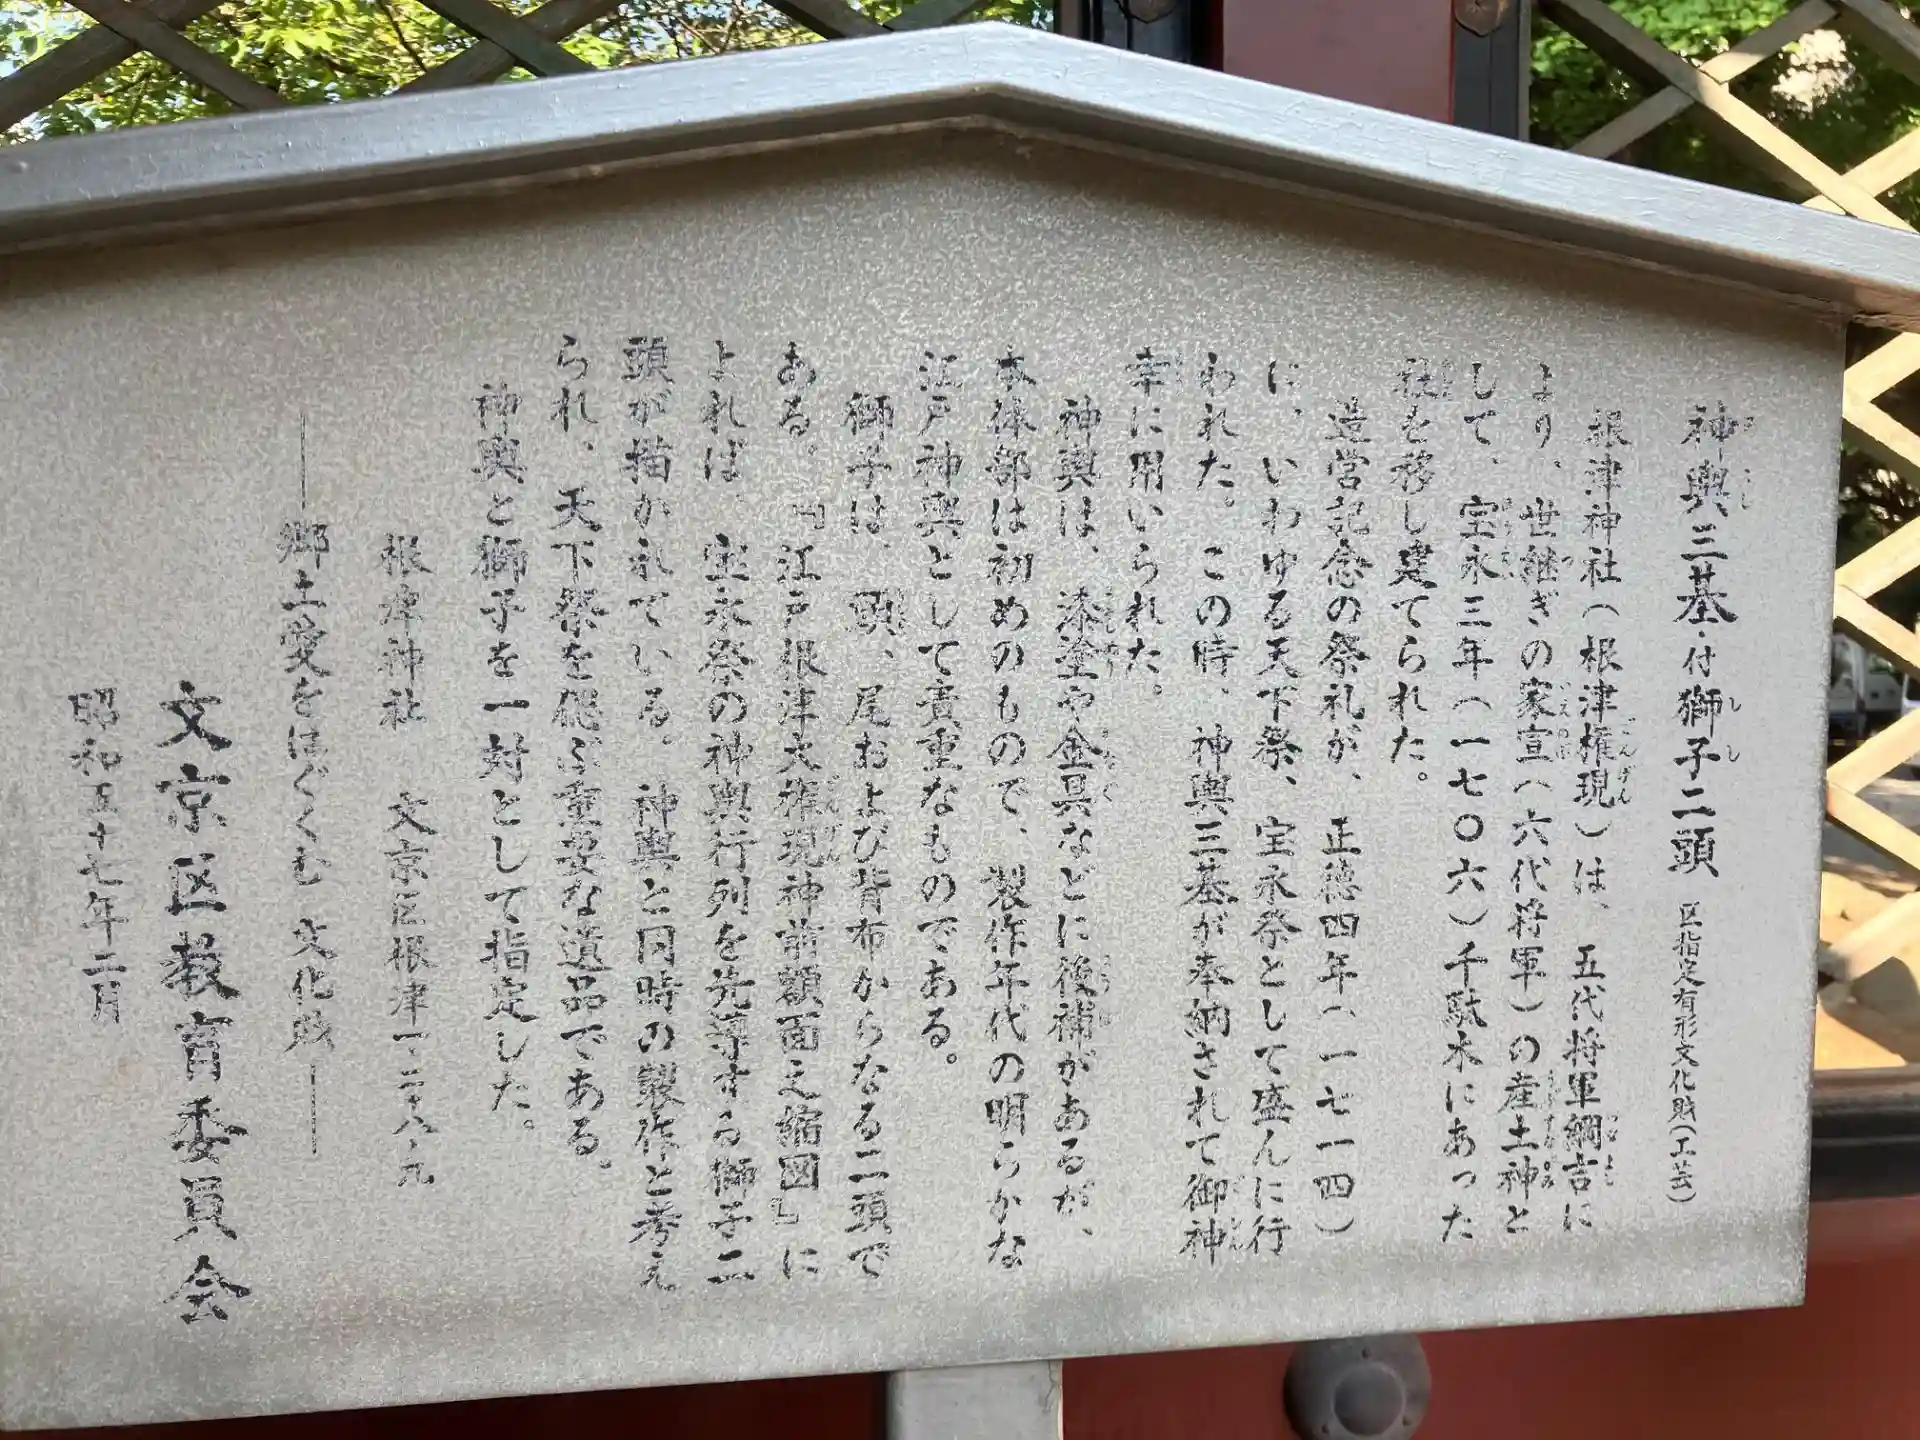 神輿三基・付獅子二頭 区指定有形文化財（工芸）
根津神社（根津権現）は、五代将軍綱吉に
より、世継ぎの家宣（六代将軍）の産土神と
して、宝永三年（一七〇六）千駄木にあった
社を移し建てられた。
造営記念の祭礼が、正徳四年（一七一四）
に、いわゆる天下祭、宝永祭として盛んに行
われた。この時、神輿三基が奉納されて御神
幸に用いられた。
神輿は、漆塗や金具などに後補があるが、
本体部は初めのもので、製作年代の明らかな
江戸神輿として貴重なものである。
獅子は、頭、尾および背布からなる二頭で
ある。『江戸根津大権現神前額面之縮図』に
よれば、宝永祭の神輿行列を先導する獅子二
頭が描かれている。神輿と同時の製作と考え
られ、天下祭を偲ぶ重要な遺品である。
神輿と獅子を一対として指定した。
根津神社 文京区根津一・二十八・九
――郷土愛をはぐくむ 文化財――
文京区教育委員会
昭和五十七年二月